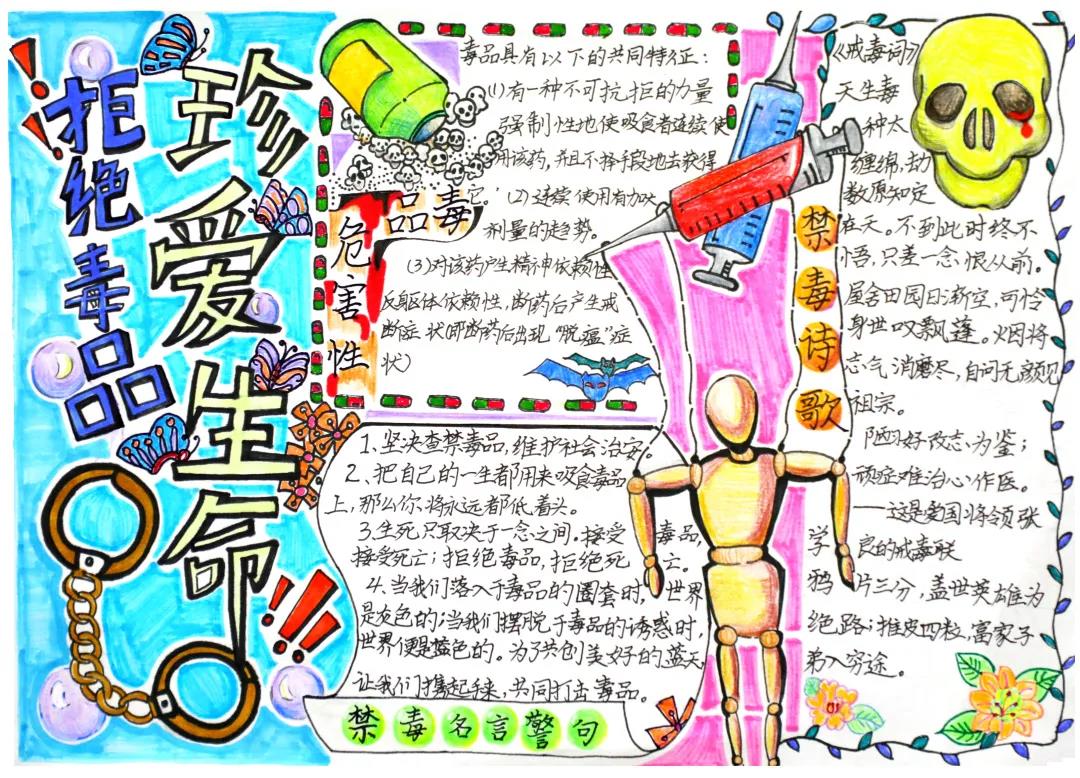 珍爱生命
拒绝毒品
毒品
危害性
毒品具有以下的共同特征:
(1)有一种不可抗拒的力量
强制性地使吸食者连续使
用该药,并且不择手段地去获得
它。(2)连续使用有加大
剂量的趋势。
(3)对该药产生精神依赖性
及躯体依赖性,断药后产生戒
断症状(即断药后出现"脱瘾"症
状)
1、坚决查禁毒品,维护社会治安。
2、把自己的一生都用来吸食毒品
上,那么你将永远都低着头。
3.生死只取决于一念之间。接受毒品,
接受死亡;拒绝毒品,拒绝死亡。
4.当我们落入于毒品的圈套时,世界
是灰色的;当我们摆脱于毒品的诱惑时,
世界便是蓝色的。为了共创美好的蓝天
让我们携起手来,共同打击毒品。
禁毒名言警句
禁毒诗歌
《戒毒词》
天生毒
种太
缠绵,劫
数原知定
在天。不到此时终不
悟,只差一念恨从前。
屋舍田园日渐空,可怜
身世叹飘蓬。烟将
志气消磨尽,自问无颜见
祖宗。
陋习好改志为鉴;
顽症难治心作医。
——这是爱国将领张
学良的戒毒联
鸦片三分,盖世英雄为
绝路;推皮四粒,富家子
弟入穷途。